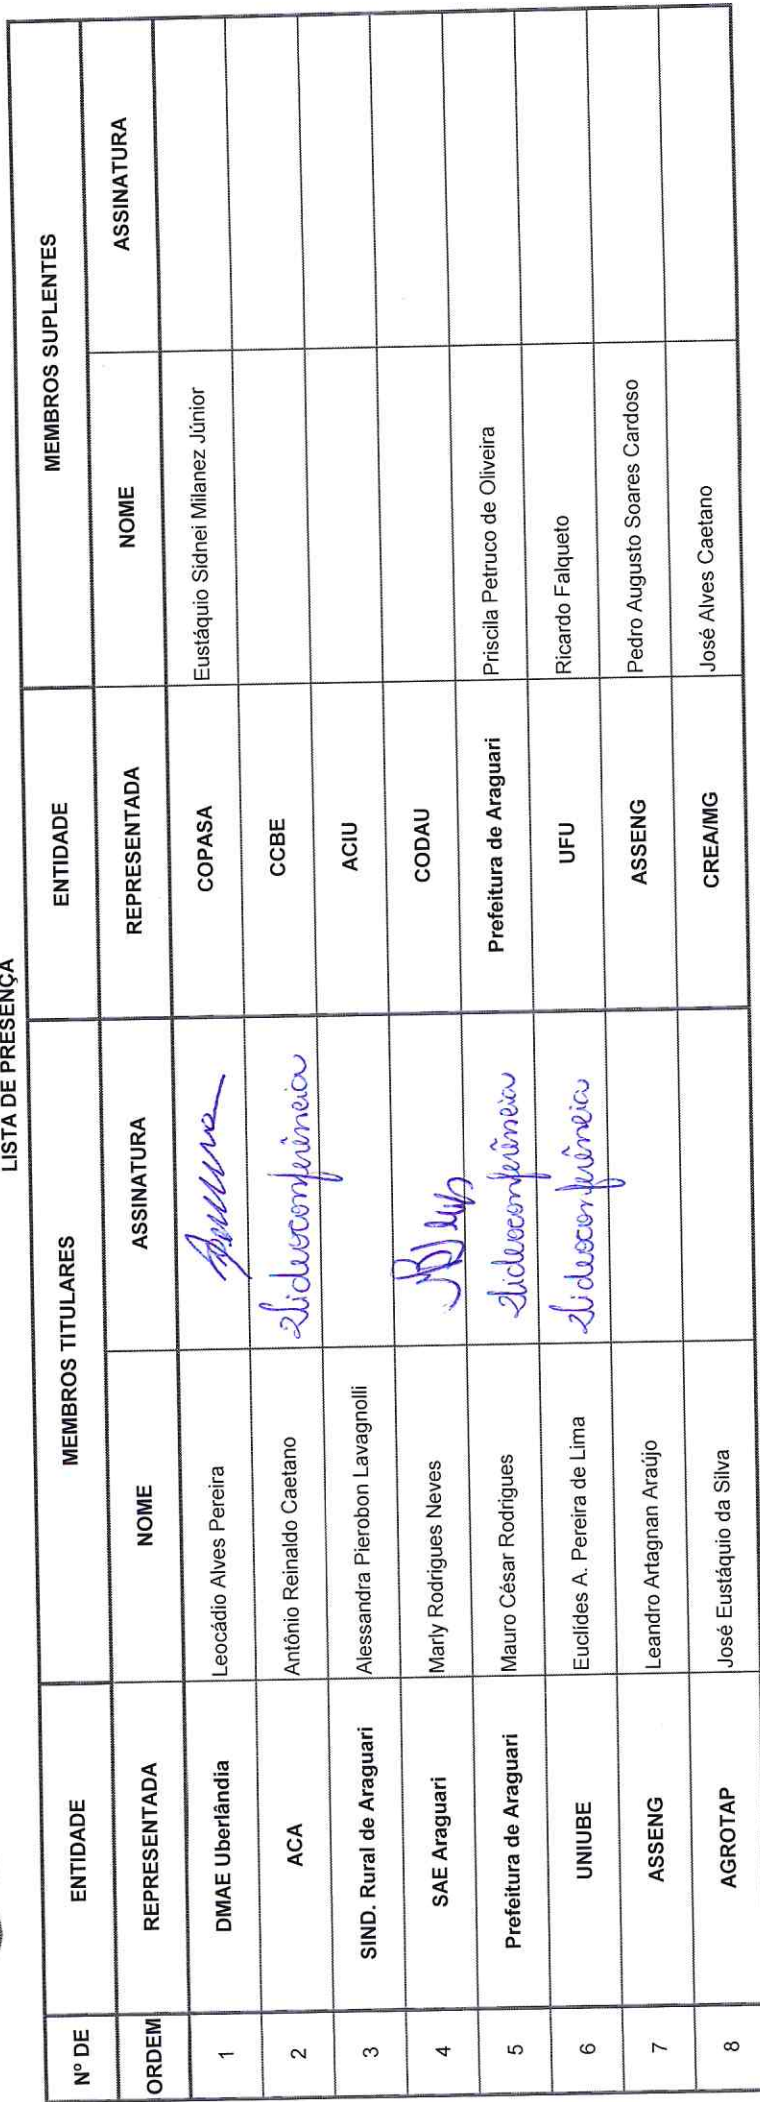 LISTA DE PRESENÇA
Nº DE ORDEM | ENTIDADE REPRESENTADA | MEMBROS TITULARES | ENTIDADE REPRESENTADA | MEMBROS SUPLENTES
NOME | ASSINATURA | NOME | ASSINATURA
1 | DMAE Uberlândia | Leocádio Alves Pereira | COPASA | Eustáquio Sidnei Milanez Júnior
2 | ACA | Antônio Reinaldo Caetano | Videoconferência | CCBE
3 | SIND. Rural de Araguari | Alessandra Pierobon Lavagnolli | ACIU
4 | SAE Araguari | Marly Rodrigues Neves | CODAU
5 | Prefeitura de Araguari | Mauro César Rodrigues | Videoconferência | Prefeitura de Araguari | Priscila Petruco de Oliveira
6 | UNIUBE | Euclides A. Pereira de Lima | Videoconferência | UFU | Ricardo Falqueto
7 | ASSENG | Leandro Artagnan Araújo | ASSENG | Pedro Augusto Soares Cardoso
8 | AGROTAP | José Eustáquio da Silva | CREA/MG | José Alves Caetano